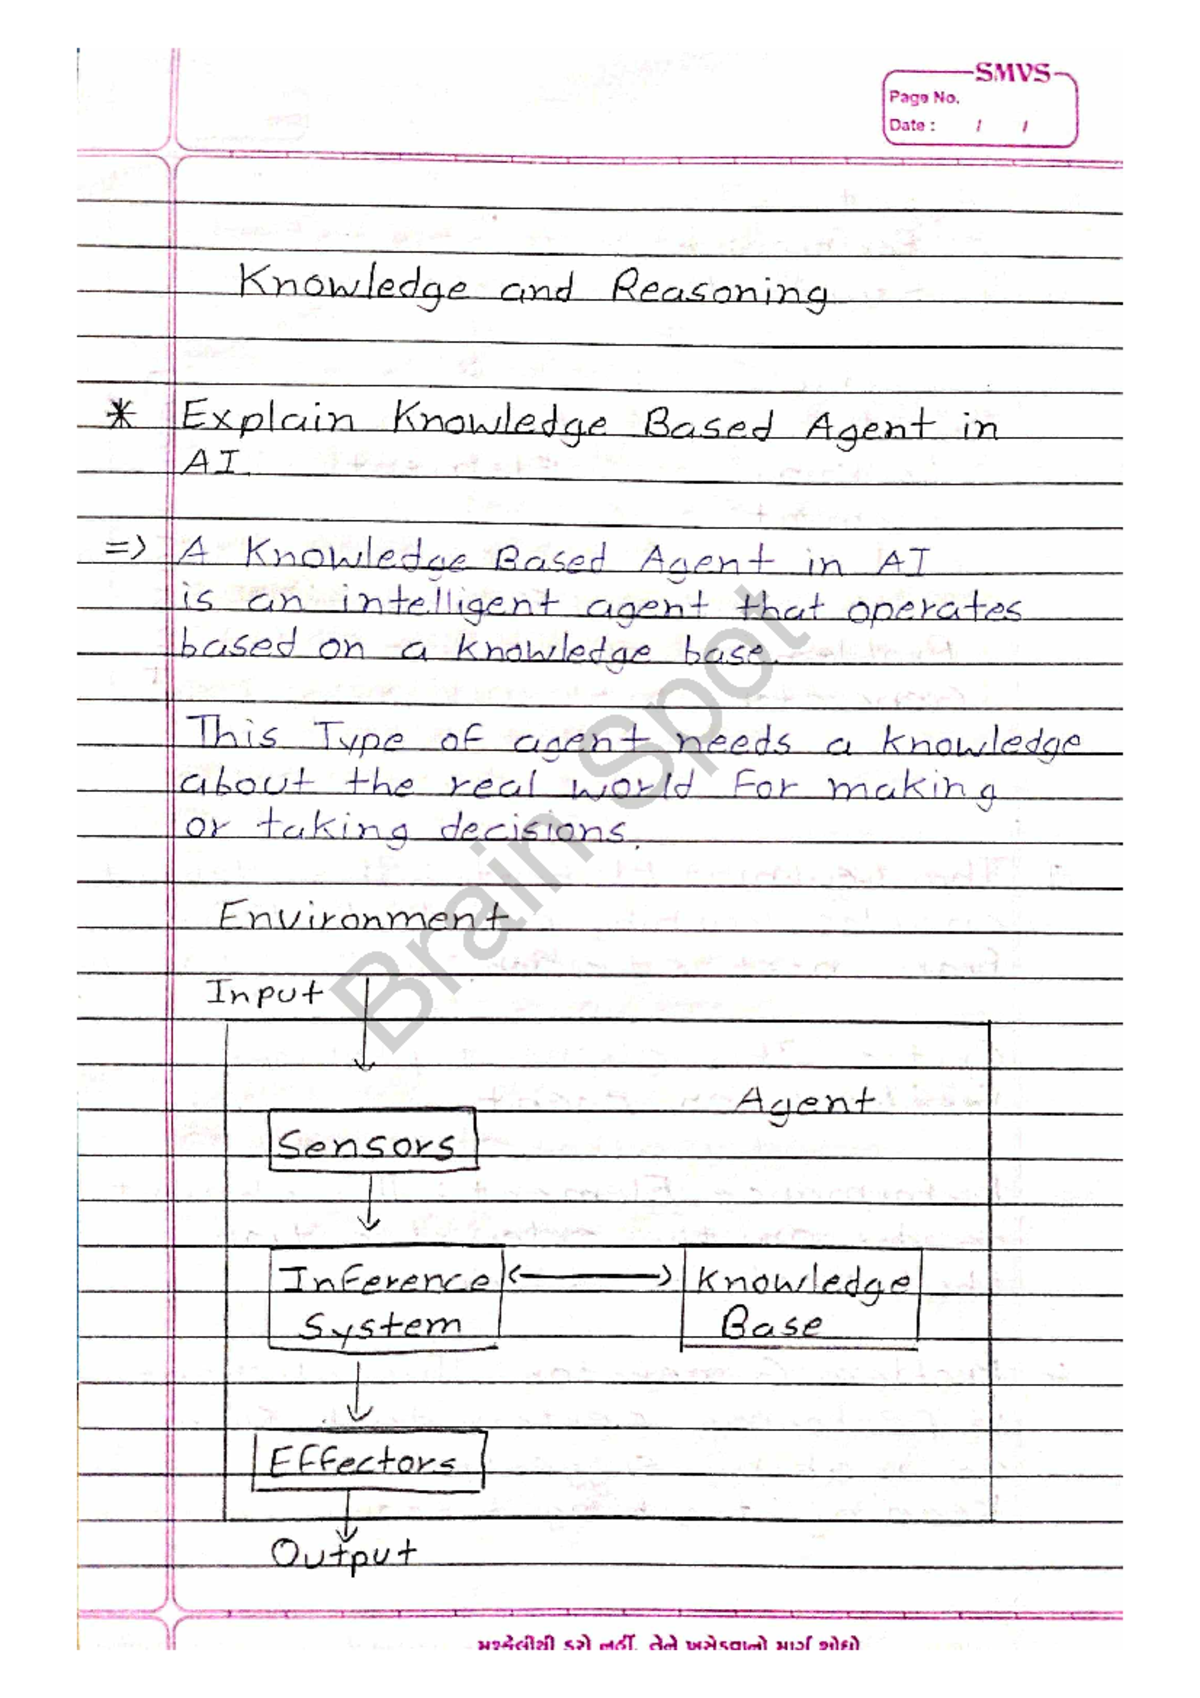 SMVS
Page No.
Date : / /
Knowledge and Reasoning
* Explain Knowledge Based Agent in
AI.
=> A Knowledge Based Agent in AI
is an intelligent agent that operates
based on a knowledge base.
This Type of agent needs a knowledge
about the real world For making
or taking decisions.
Environment
Input
Agent
Sensors
Inference <-> Knowledge
System Base
Effectors
Output
Brain Spot